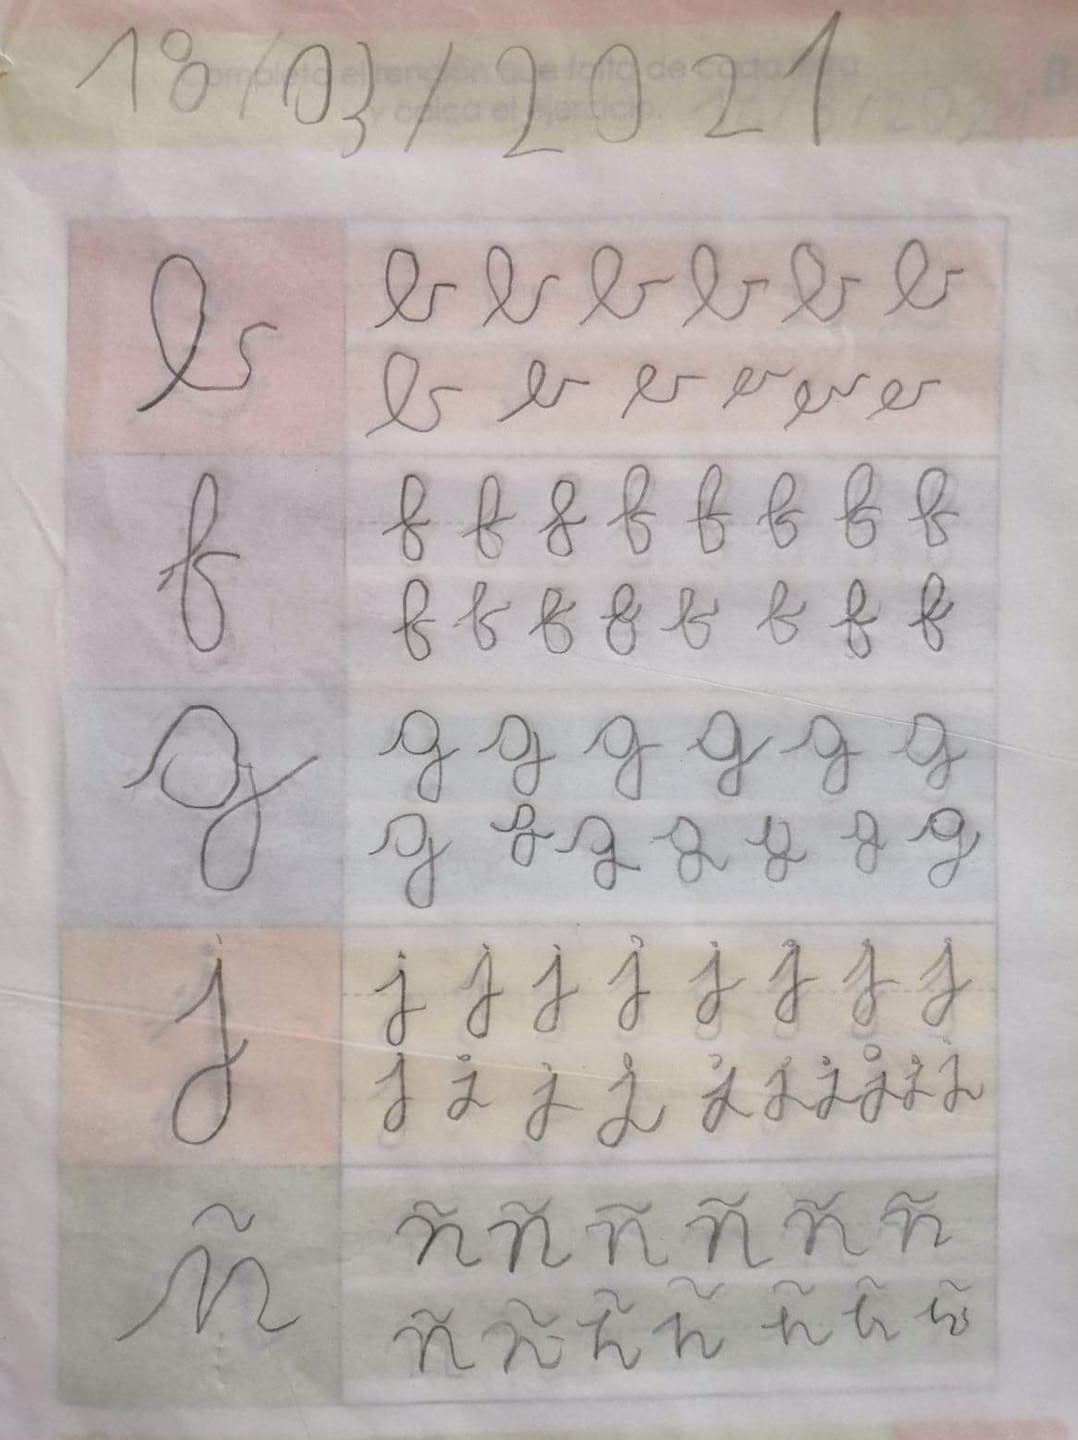 18/03/2021
Completa el renglón que falta de cada letra
y calca el ejercicio.
b b b b b b b
b b b b b b
f f f f f f f f f
f f f f f f f f
g g g g g g g
g g g g g g g
j j j j j j j j j
j j j j j j j j j j
ñ ñ ñ ñ ñ ñ ñ
ñ ñ ñ ñ ñ ñ ñ